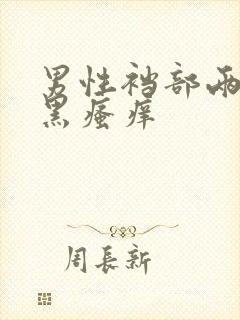 男性裆部两
黑瘙痒
周長新